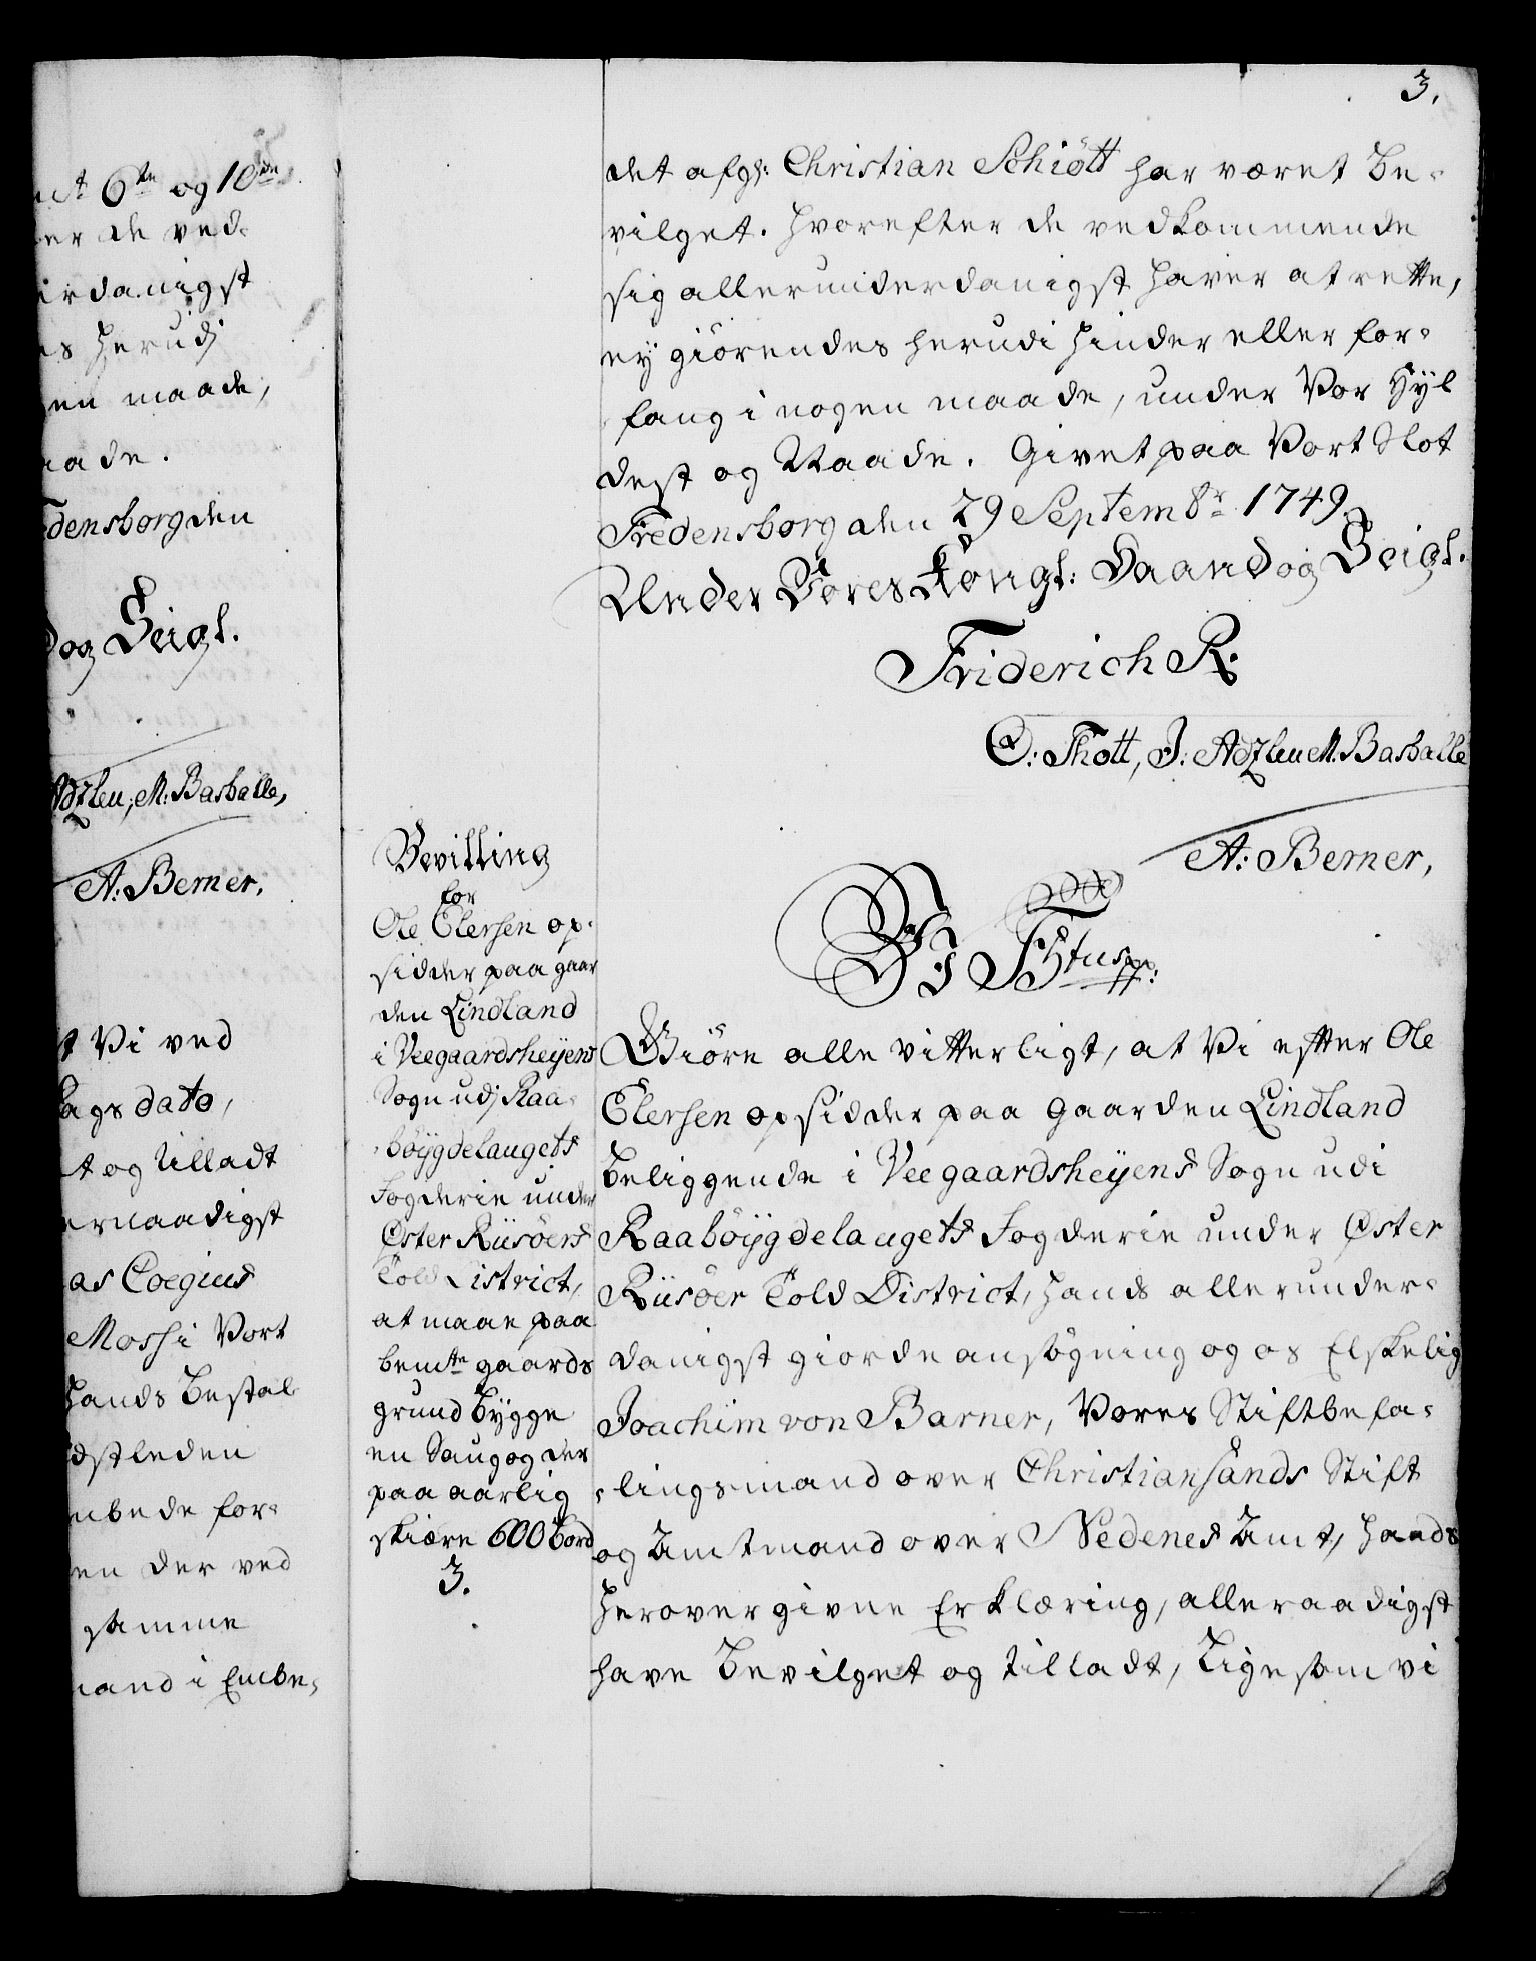 3.
...ct 6te og 10de
...er de ved-
...irdanigst
...s herudj
...en maade,
...aade.
...densborg den
...d og Seigl.
Adzleu, M: Basballe,
A: Berner.
...t Vi ved
...ags dato,
...t og tilladt
...ernaadigst
...as Coegius
Moss i Vort
hands bestal-
...dstleden
...mbede for-
...en der ved
samme
...mand i Embe-
det afgl: Christian Schiött har været be-
vilget. hvorefter de vedkommende
sig allerunderdanigst haver at rette,
ey giörendes herudi hinder eller for-
fang i nogen maade, under Vor Hyl
dest og Naade. Givet paa Vort Slot
Fredensborg den 29 Septem8r 1749.
Under Vores Kongl: Haand og Seigl.
Friderich R.
O: Thott, J: Adzleu M: Basballe
A: Berner,
Bevilling
for
Ole Elersen op-
sidder paa gaar
den Lindland
i Veegaardsheyens
Sogn udj Raa-
böygdelaugets
Fogderie under
Øster Riisöers
Told District,
at maae paa
bemte gaards
grund bygge
en Saug og der
paa aarlig
skiære 600 bord
3.
Vi Fr: 5tus pp:
Giöre alle vitterligt, at Vi efter Ole
Elersen opsidder paa gaarden Lindland
beliggende i Veegaardsheyens Sogn udi
Raaböygdelaugets Fogderie under Øster
Riisöer Told District, hands allerunder-
danigst giorde ansögning og os Elskelig
Joachim von Barner, Vores Stiftbefa-
lingsmand over Christiansands Stift
og Amtmand over Nedenes Amt, hands
herover givne Erklæring, allernaadigst
have bevilget og tilladt, ligesom vi